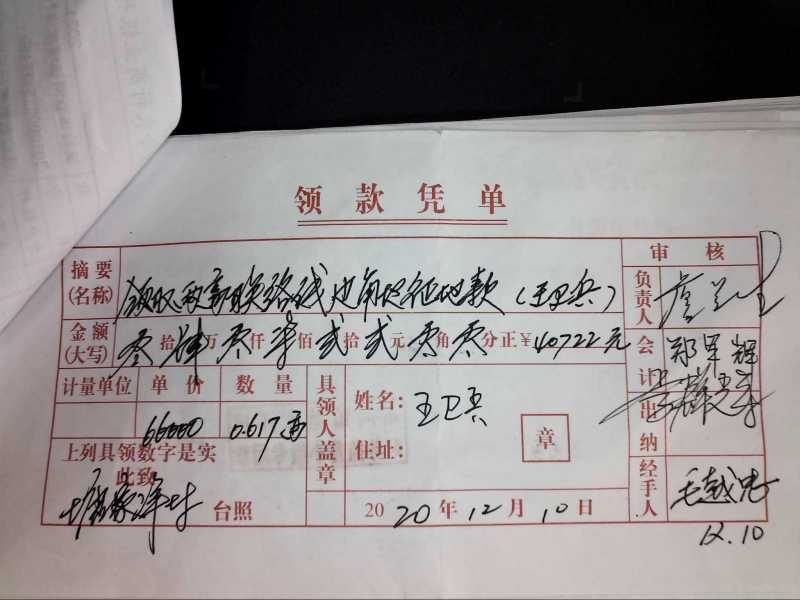 领款凭单
摘要(名称) 领取 高联络线边角地征地款(王卫兵) 审核
负责人
金额(大写) 零拾肆万零仟柒佰贰拾贰元零角零分正¥40722元
会计 郑军辉
计量单位 单价 数量 具领人盖章 姓名:王卫兵
66000 0.617亩
出纳
上列具领数字是实 住址: 章
此致
台照 2020年12月10日 经手人 毛越忠
12.10